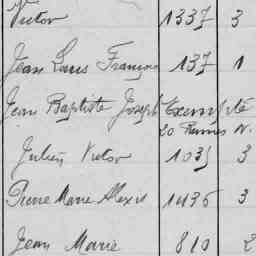 Victor 1337 3
Jean Louis François 137 1
Jean Baptiste Joseph Exempté
20 Rennes N.
Julien Victor 1035 3
Pierre Marie Alexis 1436 3
Jean Marie 810 2